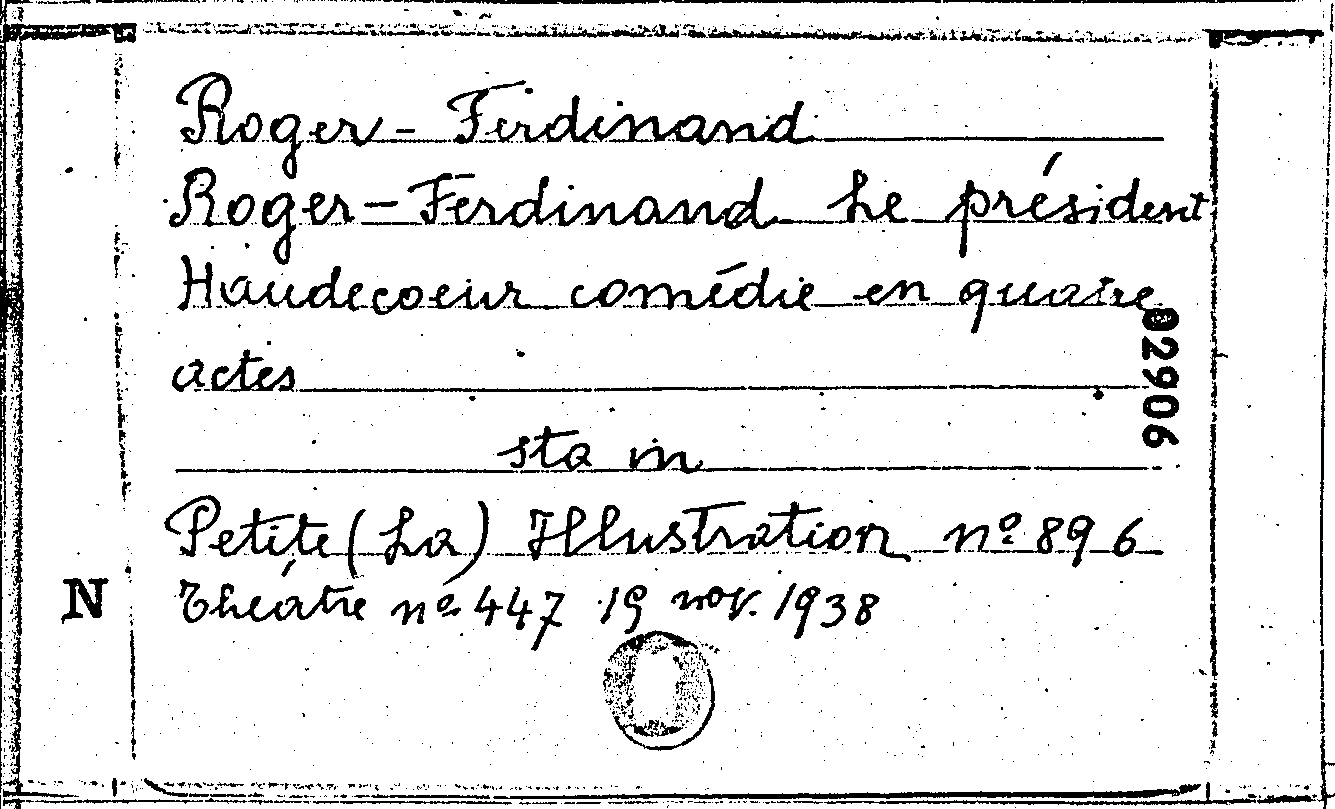 Roger-Ferdinand
Roger-Ferdinand Le président
Haudecoeur comédie en quatre
actes
02906
sta in
Petite (La) Illustration nº 896
N
Théâtre nº 447 19 nov. 1938